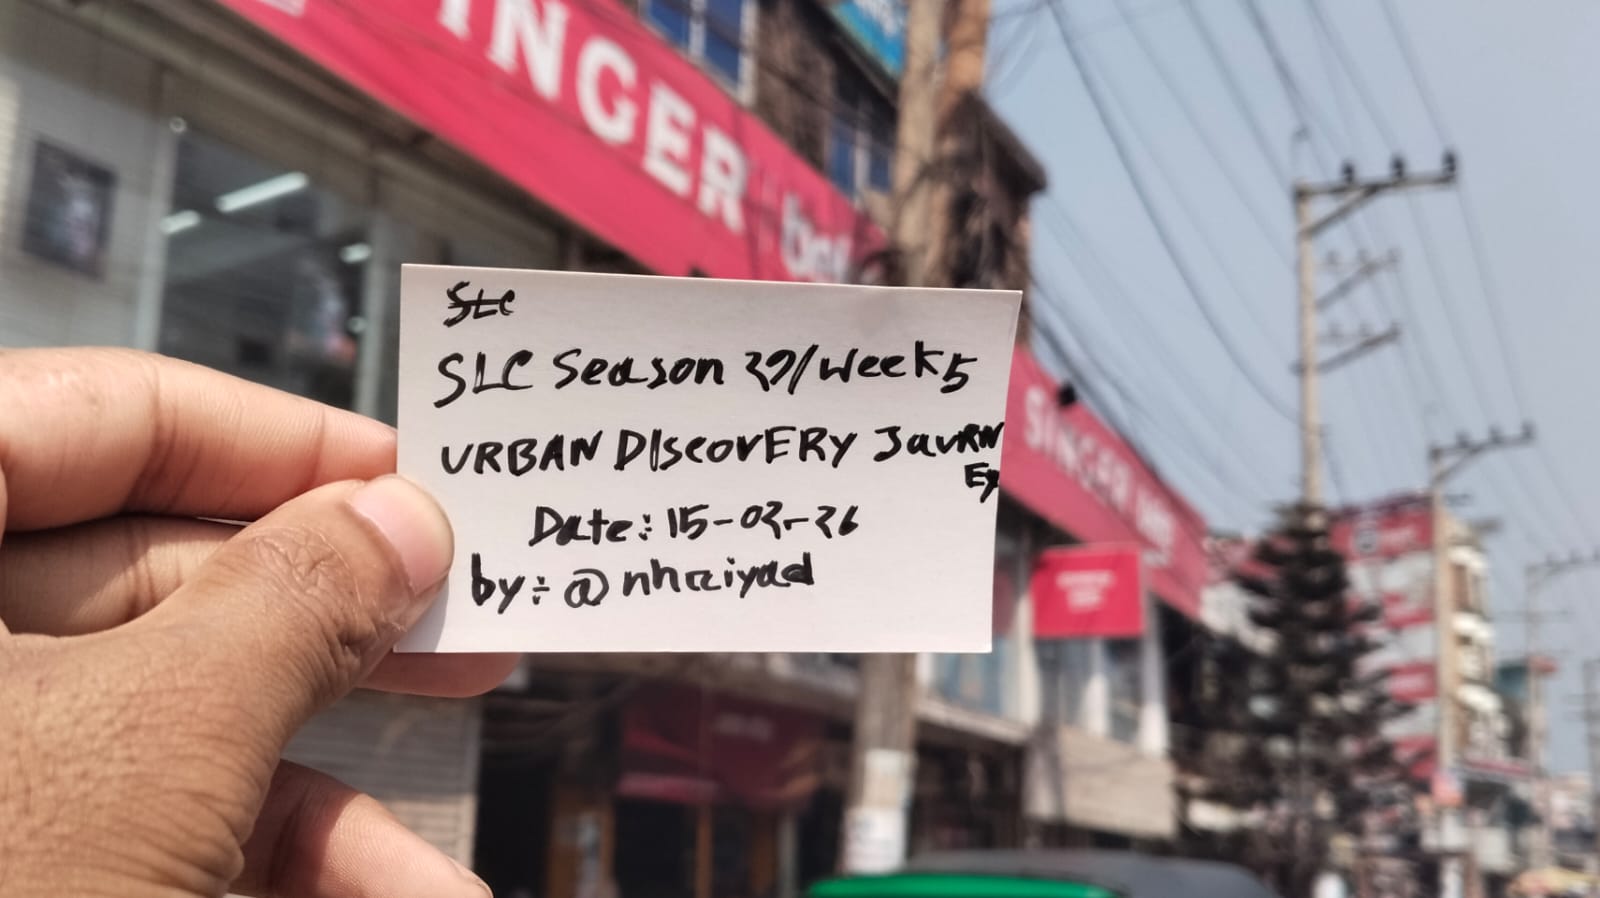 SINGER
SLC
SLC Season 29/Week5
URBAN DIscovERy JouRN
Ey
Date: 15-02-26
by: @nhraiyad
SINGER